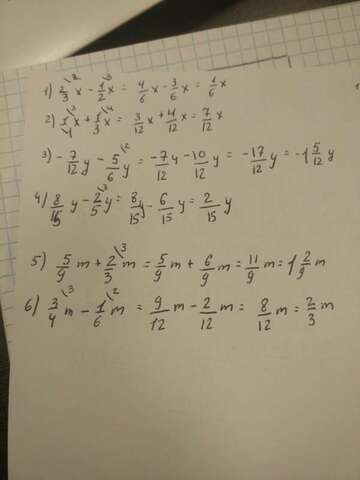 1) 2/3\² x - 1/2\³ x = 4/6 x - 3/6 x = 1/6 x
2) 1/4\³ x + 1/3\⁴ x = 3/12 x + 4/12 x = 7/12 x
3) - 7/12 y - 5/6\² y = -7/12 y - 10/12 y = -17/12 y = -1 5/12 y
4) 8/15 y - 2/5\³ y = 8/15 y - 6/15 y = 2/15 y
5) 5/9 m + 2/3\³ m = 5/9 m + 6/9 m = 11/9 m = 1 2/9 m
6) 3/4\³ m - 1/6\² m = 9/12 m - 2/12 m = 8/12 m = 2/3 m